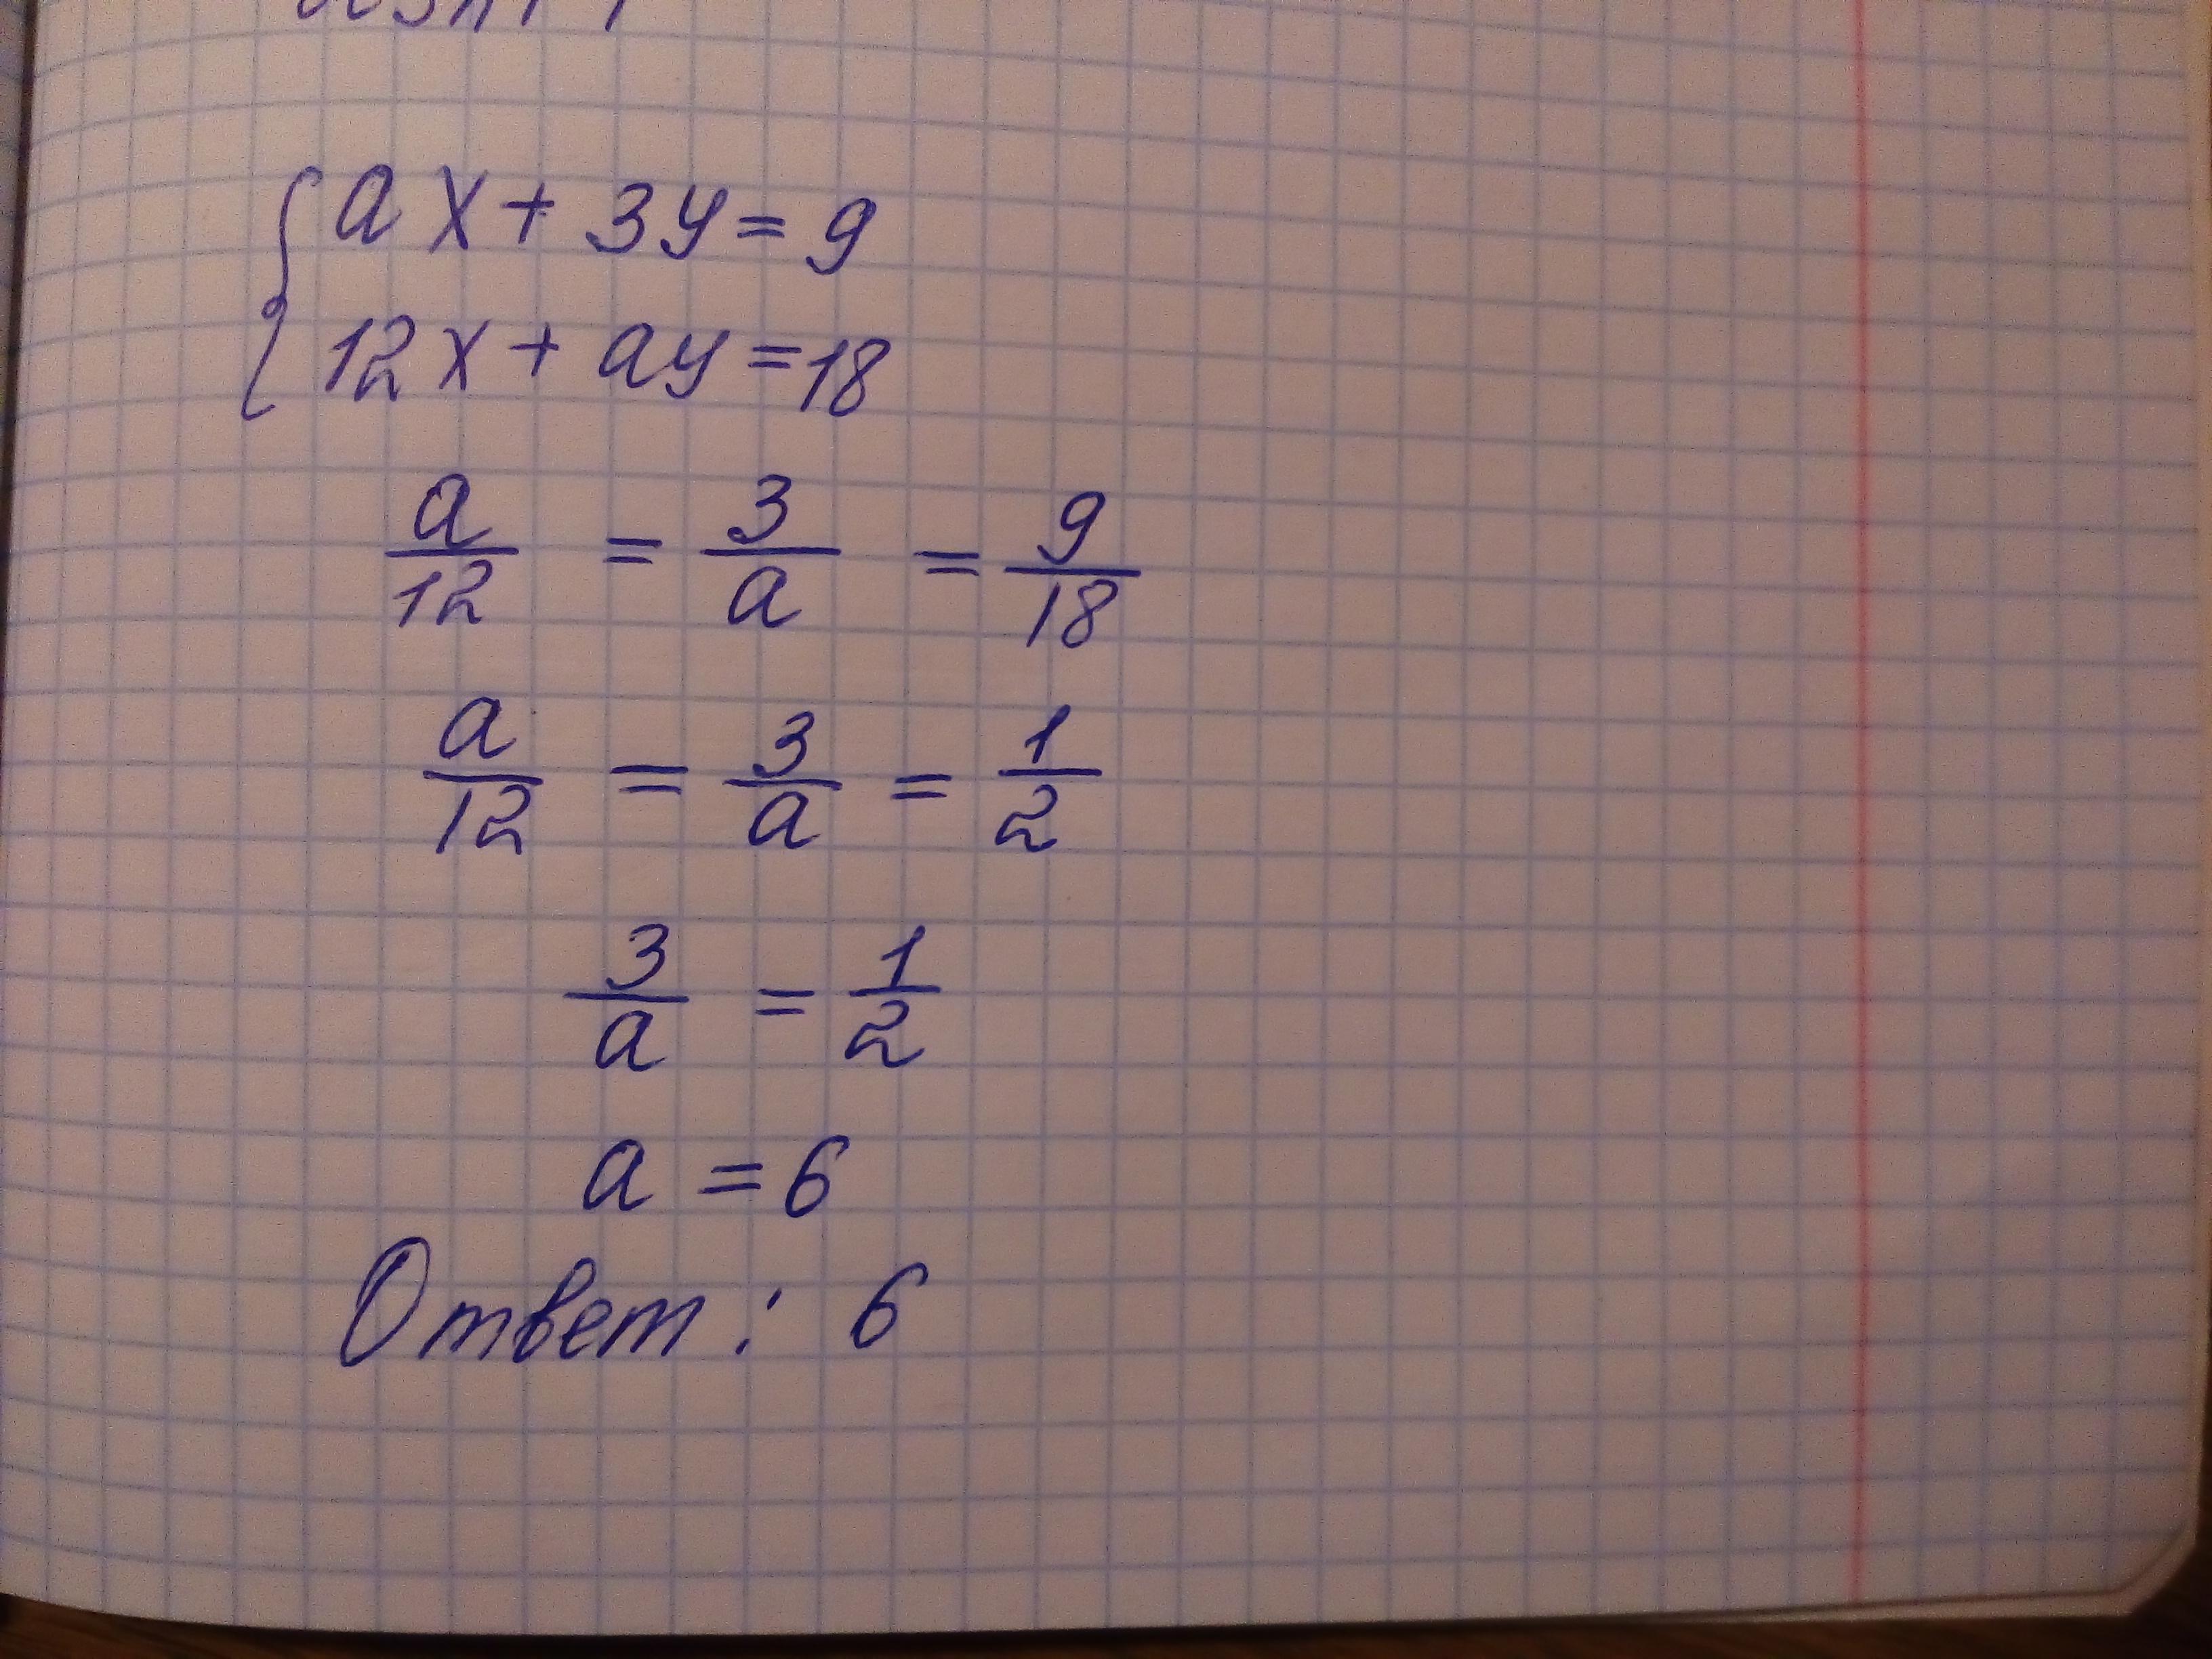 {ax + 3y = 9
12x + ay = 18
a/12 = 3/a = 9/18
a/12 = 3/a = 1/2
3/a = 1/2
a = 6
Ответ: 6